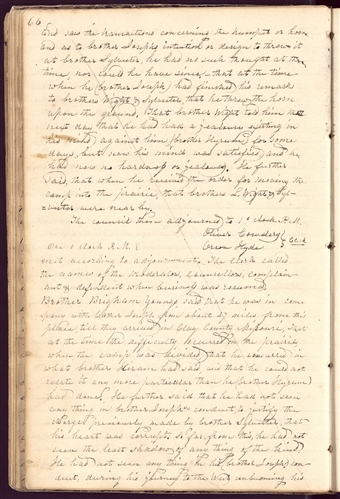 66
And saw the transactions concerning the trumpet or horn
and as to brother Joseph's intention or design to throw it
at brother Sylvester, he had no such thought at the
time, nor could he have since,— that at the time
when he (brother Joseph) had finished his remarks
to brothers Wight & Sylvester, that he threw the horn
upon the ground. That brother Wight told him the
next day that he had had a jealousy existing in
his mind, against him (brother Hyrum) for some
days, but says his mind was satisfied, and he
has now no hardness or jealousy. He further
said, that when he received the order for moving the
camp into the prairie, that brothers L. Wight & Syl-
vester were near by.
The council then adjourned to 1 o'clock P.M.
Oliver Cowdery
Orson Hyde } Clerks
One o'clock P.M.
met according to adjournment. The clerk called
the names of the moderator, counsellors, complain-
ant & defendant when business was resumed.
Brother Brigham Young said that he was in com-
pany with brother Joseph from about 27 miles from this
place till they arrived in Clay County Missouri, that
at the time the difficulty occurred in the prairie,
when the camp was divided that he concurred in
what brother Hiram had said, and that he could not
relate to any more particulars than he (brother Hyrum)
had done. He further said that he had not seen
any thing in brother Joseph's conduct to justify the
charges previously made by brother Sylvester, that
his heart was corrupt, so far from this, he had not
seen the least shadow of any thing of the kind.
He had not seen any thing in his, brother Joseph's con-
duct, during his journey to the West unbecoming his